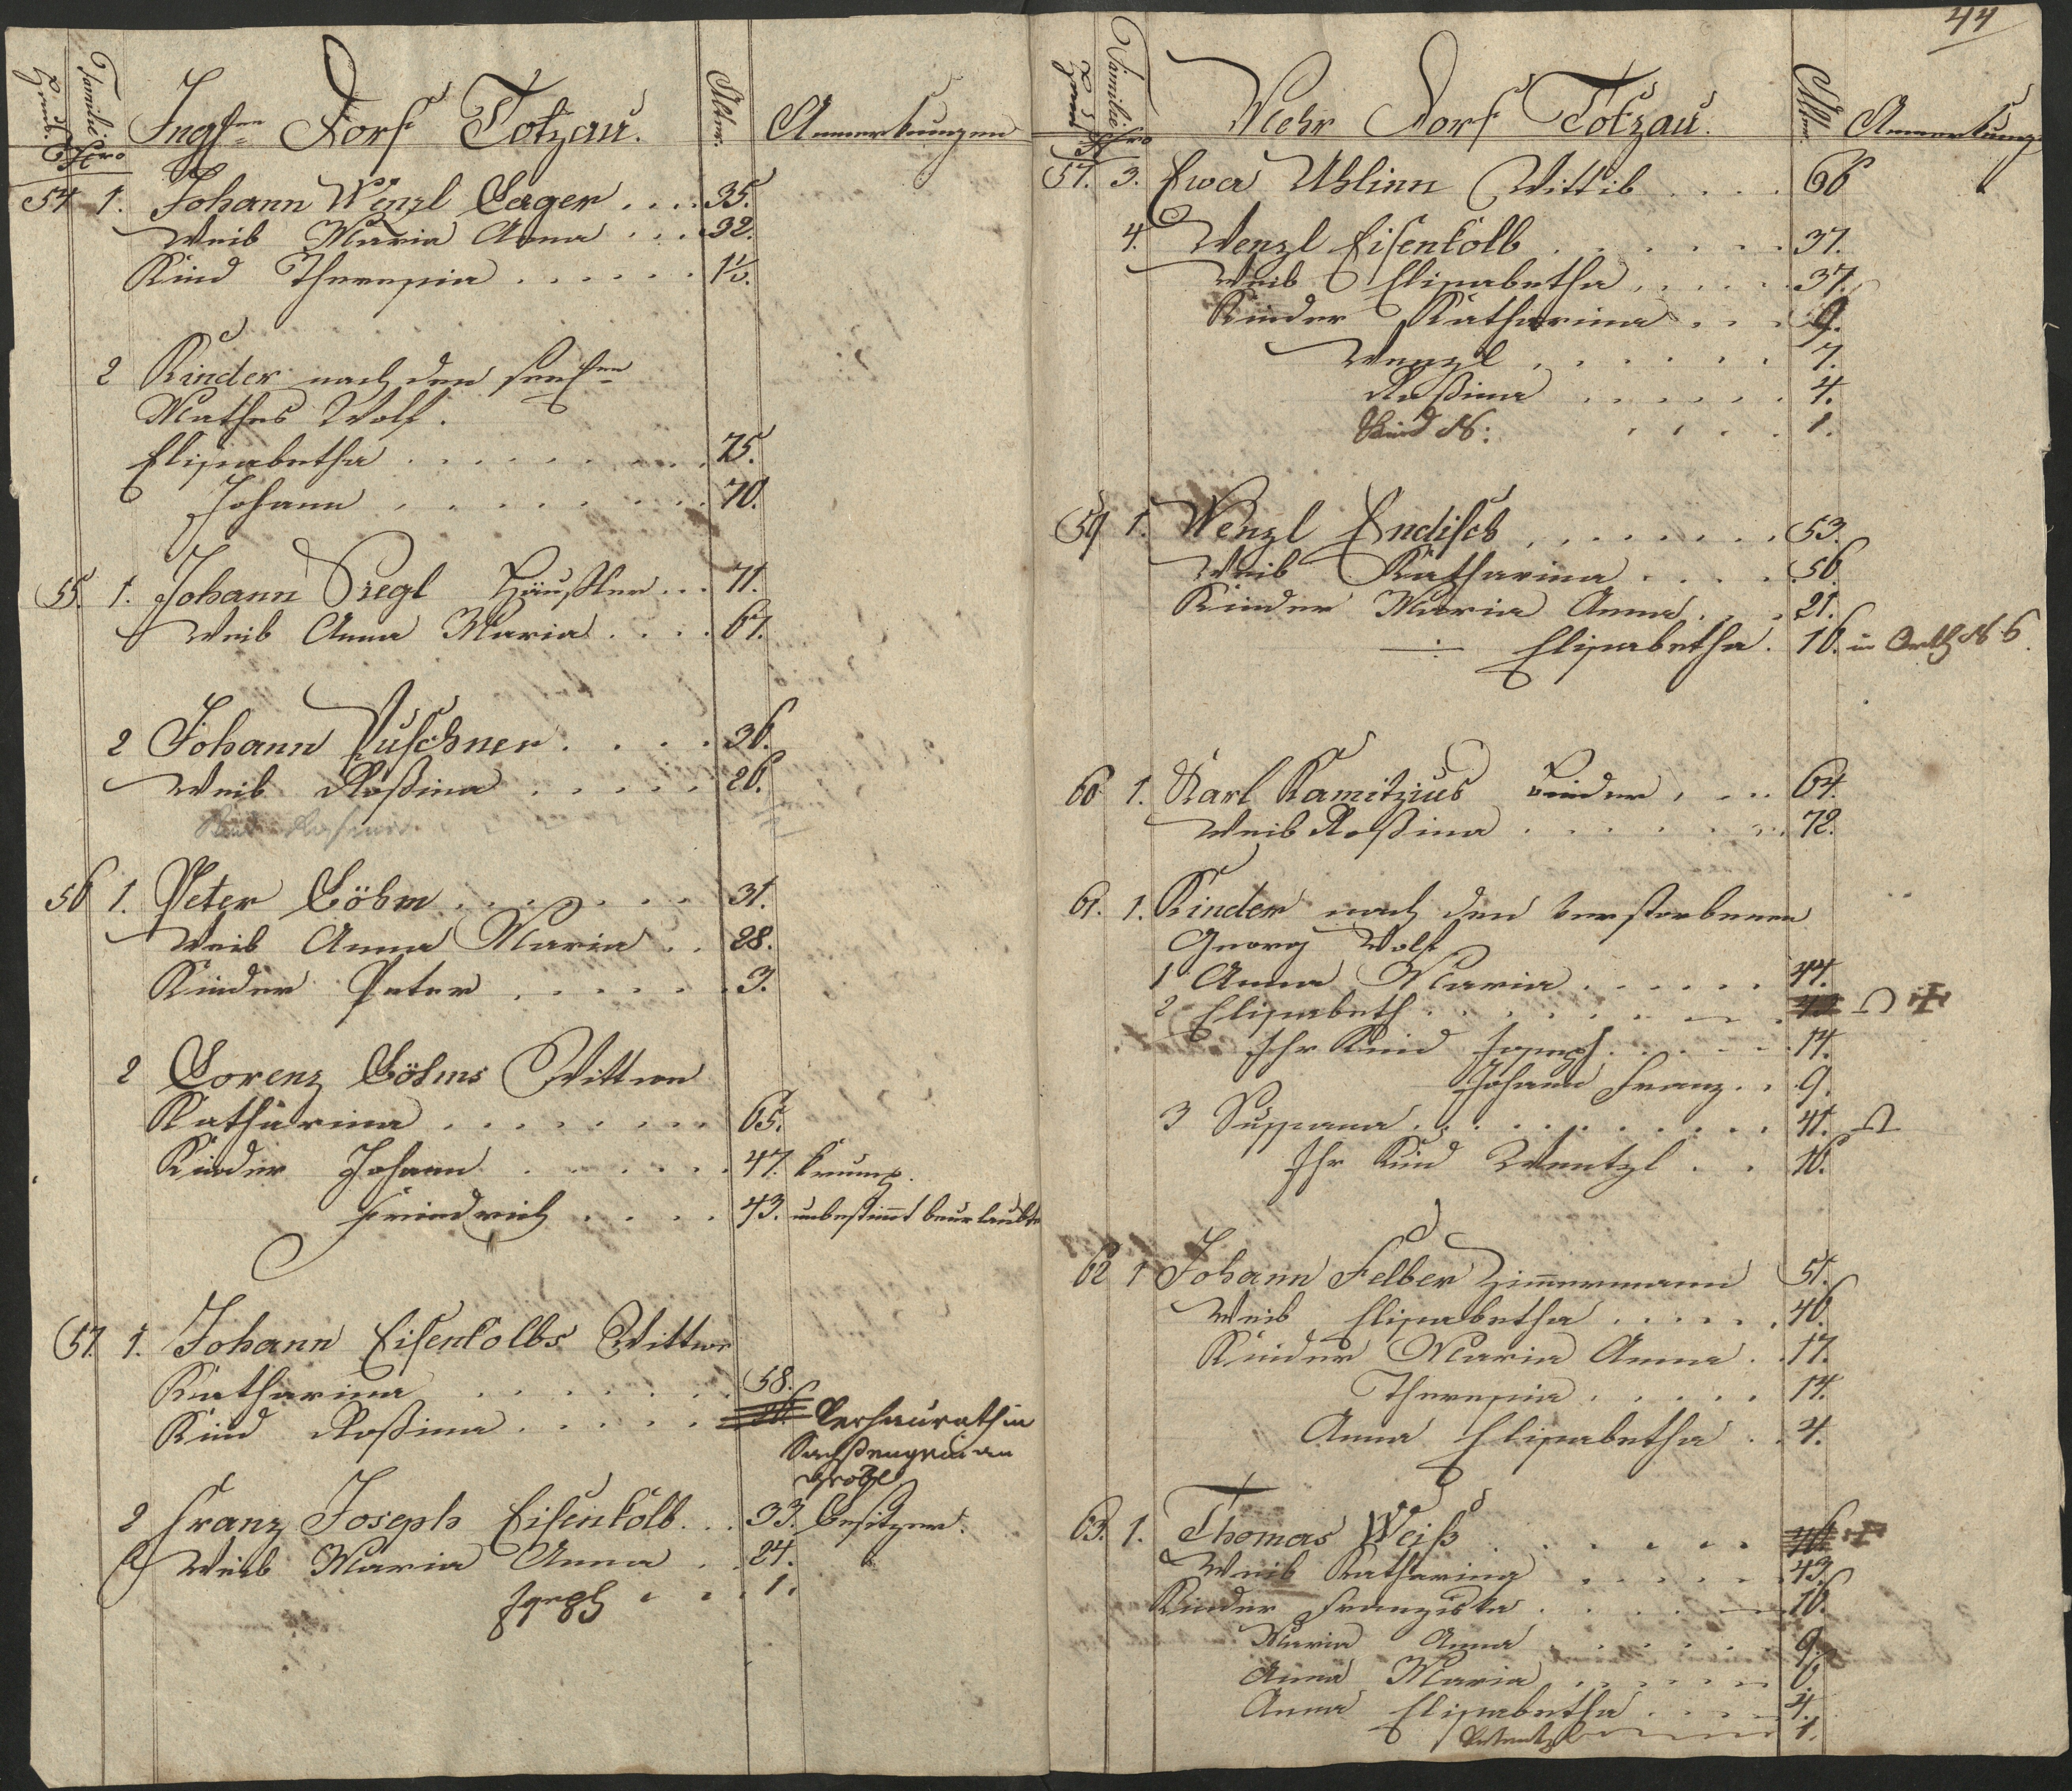 Haus Familie Nro Dorf Totzau. Alter. Anmerkungen
54 1. Johann Wenzl Lager .... 35.
Weib Maria Anna ... 32.
Kind Theresia ...... 1½.
2 Kinder nach den
Mathes Wolf.
Elisabetha ......... 75.
Johann ........ 70.
55. 1. Johann Siegl Häußler ... 71.
Weib Anna Maria .... 67.
2 Johann Puschner .... 36.
Weib Roßina ..... 26.
Kind
56 1. Peter Böhm ....... 31.
Weib Anna Maria .. 28.
Kinder Peter ...... 3.
2 Lorenz Böhms Wittwe
Katharina ........ 65.
Kinder Johann ...... 47. krump.
Friedrich .... 43. unbestimt beurlaubt
57. 1. Johann Eisenkolbs Wittwe
Katharina ....... 58.
Kind Roßina ..... Verheurath in
Sachsengrün an
2 Franz Joseph Eisenkolb ... 33. Besitzer.
Weib Maria Anna .. 24.
Joseph ... 1.
44
Haus Familie Nro Mehr Dorf Totzau. Alter. Anmerkung
57. 3. Ewa Uhlinn Wittib .... 66
4. Wenzl Eisenkolb ...... 37.
Weib Elisabetha ..... 37.
Kinder Katharina ... 9.
Wenzl ...... 7.
Roßina ...... 4.
Kind N: .... 1.
59 1. Wenzl Endisch ....... 53.
Weib Katharina .... 56.
Kinder Maria Anna ... 21.
÷ Elisabetha . 16. in N 6.
60 1. Karl Kamitzius Binder ... 64.
Weib Roßina ...... 72.
61. 1. Kinder nach den verstorbenen
Georg Wolf
1 Anna Maria ...... 44.
2 Elisabeth .......
Ihr Kind Joseph ..... 14.
Johann Franz .. 9.
3 Sussana ........... 41.
Ihr Kind Wentzl .. 10.
62 1 Johann Felber Zimmermann 51.
Weib Elisabetha ..... 46.
Kinder Maria Anna .. 17.
Theresia ..... 14.
Anna Elisabetha .. 4.
63. 1. Thomas Weiß ......
Weib Katharina ..... 43.
Kinder Franziska ..... 16.
Maria Anna ...... 9.
Anna Maria ...... 6.
Anna Elisabetha .... 4.
1.